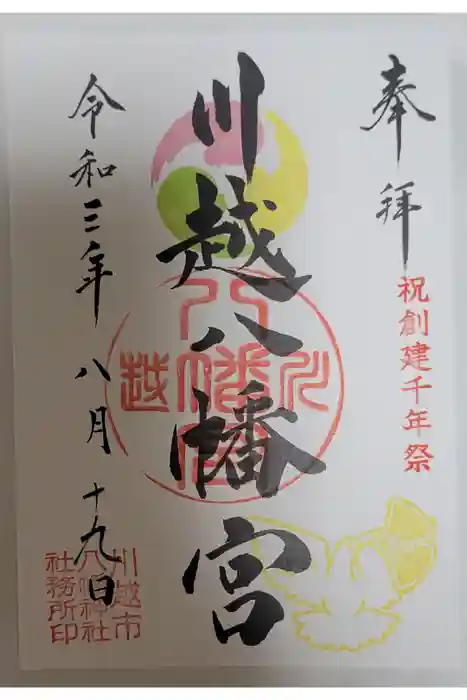 奉拝
祝創建千年祭
川越八幡宮
川越
八幡宮
令和三年八月十九日
川越市
八幡神社
社務所印